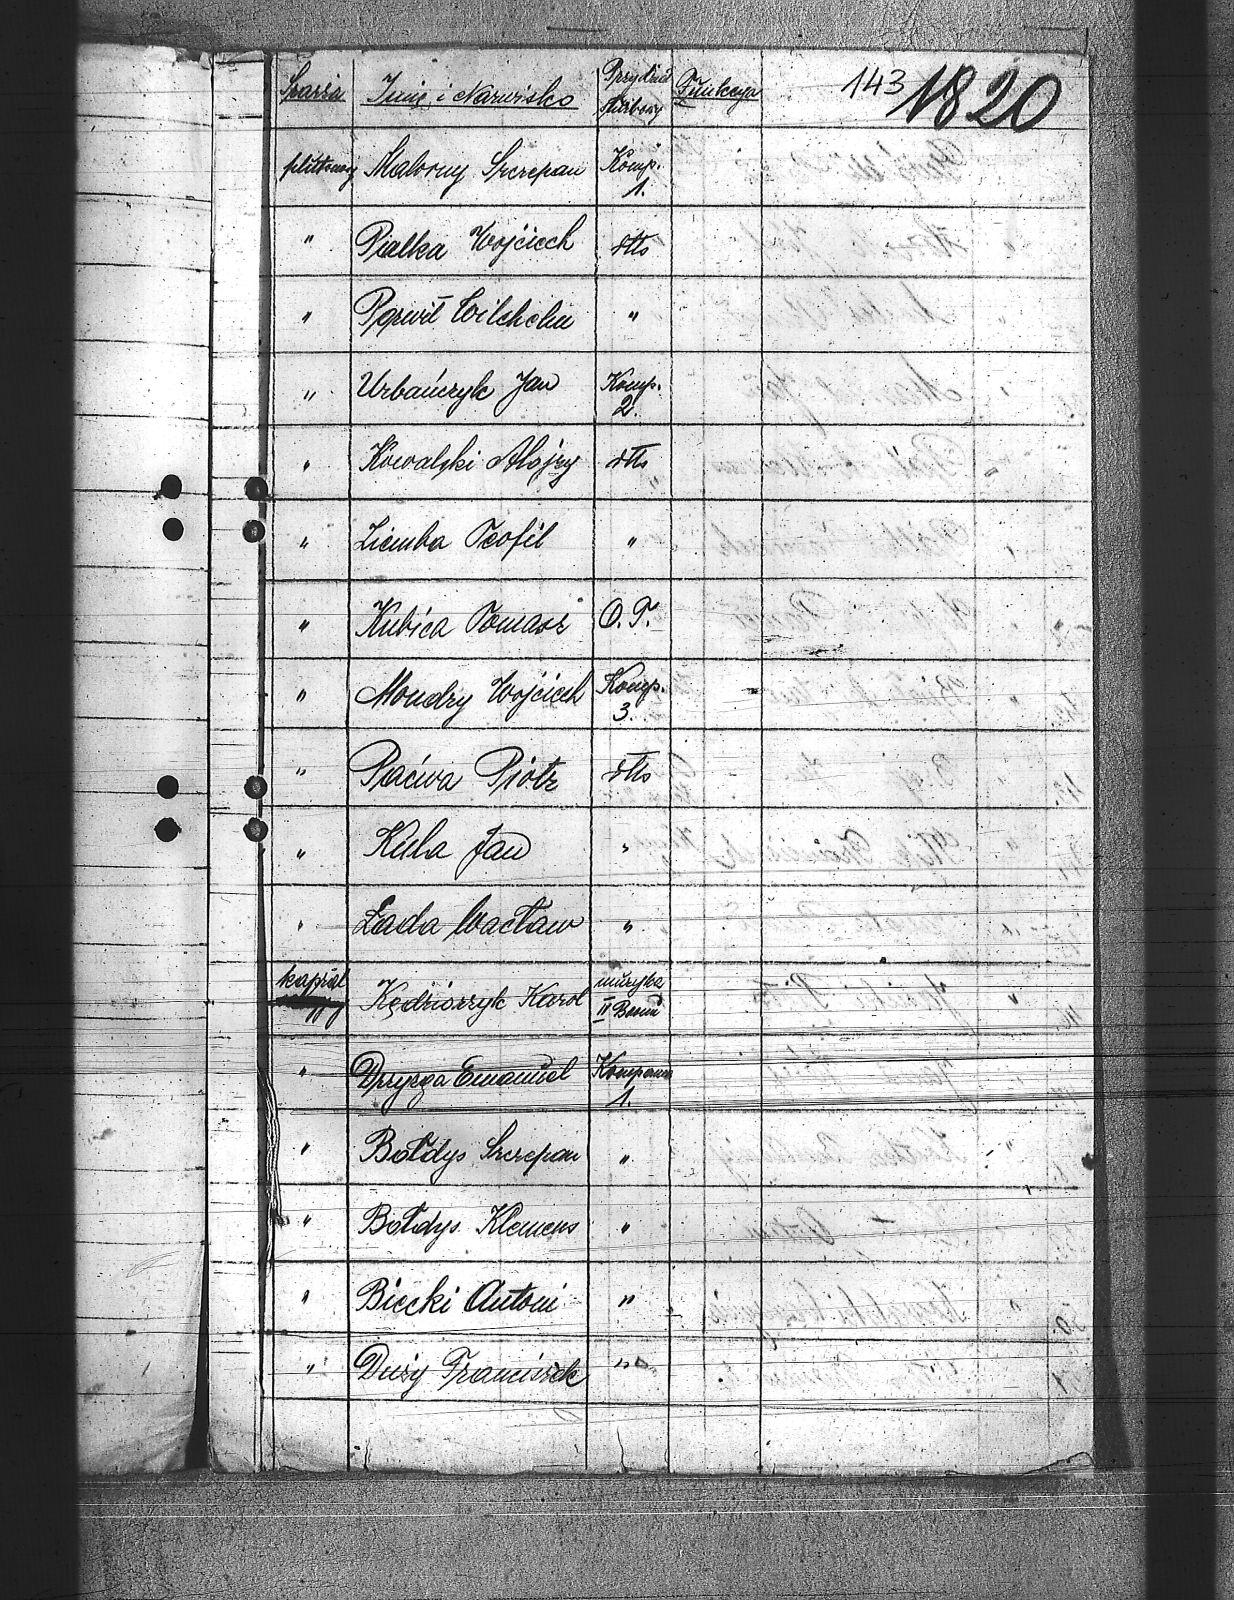 Szarża Imię i Nazwisko Przydział służbowy Funkcya 143 1820
plutonowy Malorny Szczepan Komp. 1.
" Pialka Wojciech dtto
" Porwit Wilhelm "
" Urbańczyk Jan Komp. 2.
" Kowalski Alojzy dtto
" Ziemba Teofil "
" Kubica Tomasz O. T.
" Mondry Wojciech Komp. 3.
" Paćwa Piotr dtto
" Kula Jan "
" Łada Wacław "
kapral Kędziorzyk Karol muzyka II Baonu
" Dzyzga Emanuel Kompania 1.
" Bołdys Szczepan "
" Bołdys Klemens "
" Biecki Antoni "
" Duży Franciszek "